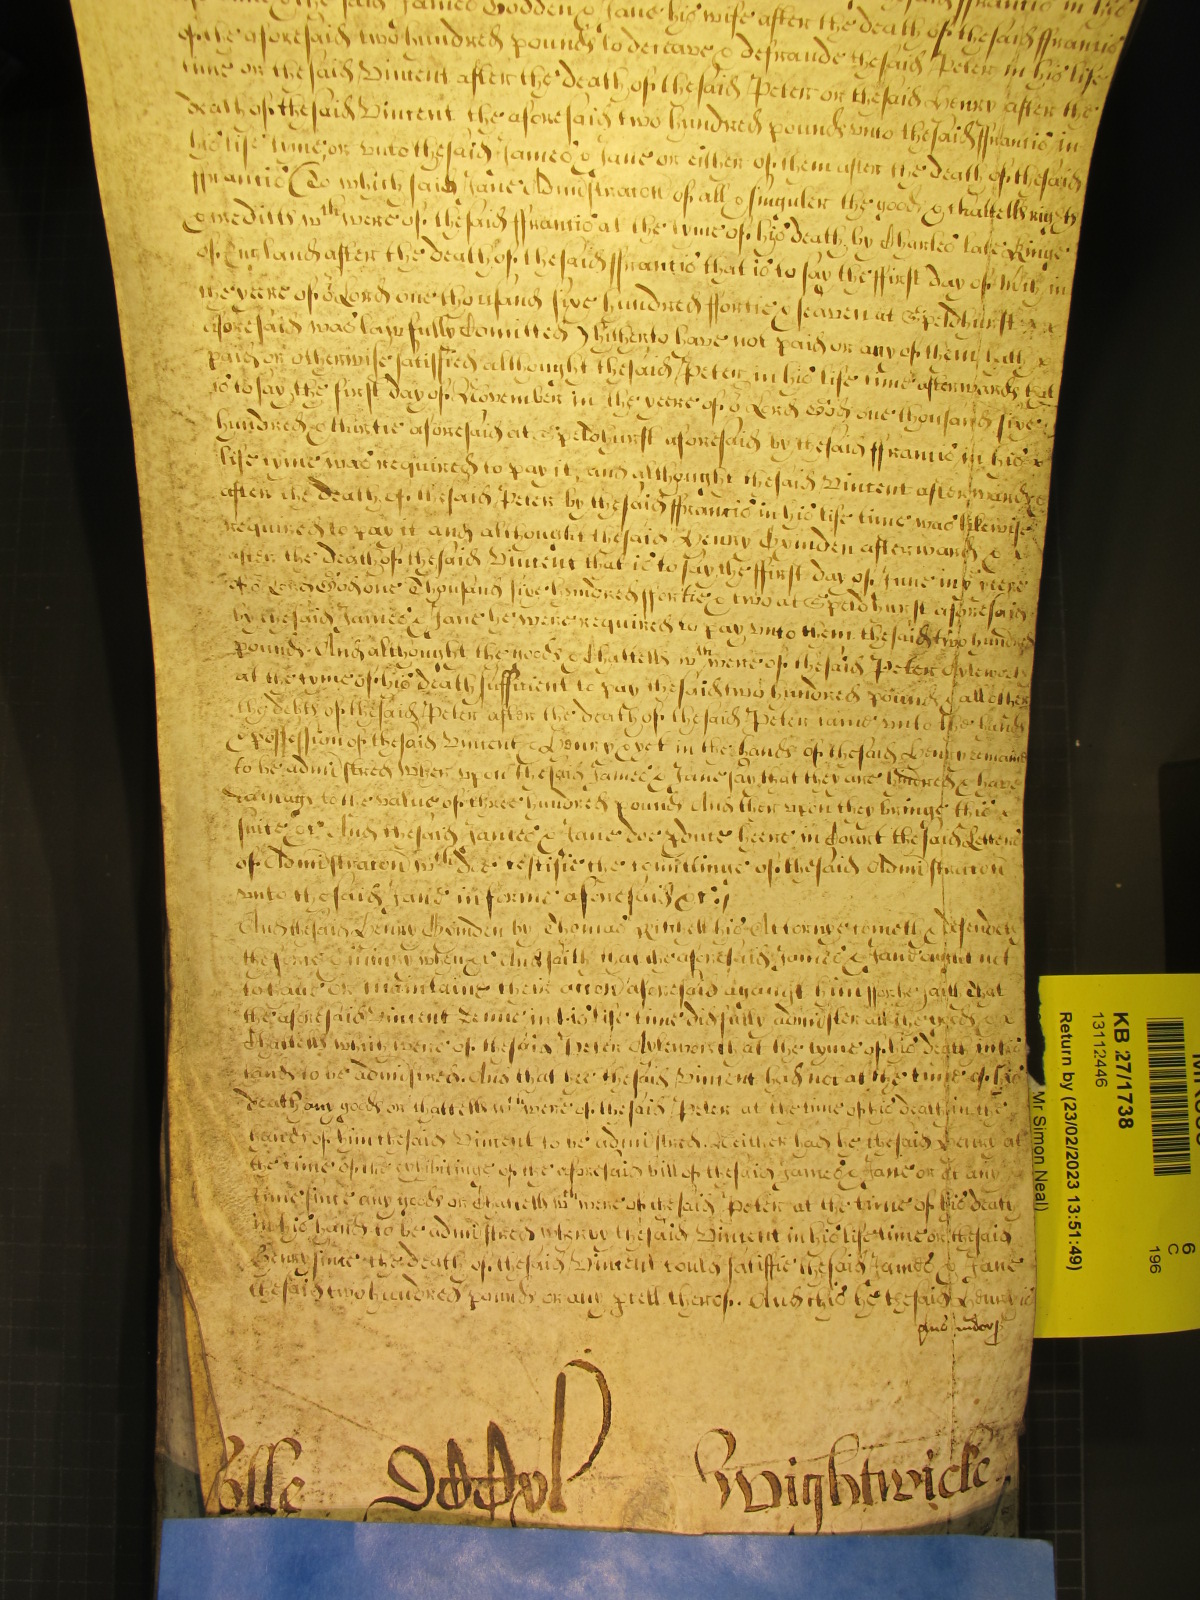 of the said James Godden & Jane his wife after the death of the said ffrancis
of the aforesaid two hundred pounds to deceave & defraude the said Peter in his life
time or the said Vincent after the death of the said Peter or the said Henry after the
death of the said Vincent the aforesaid two hundred pounds vnto the said ffrancis in
his life tyme or vnto the said James & Jane or either of them after the death of the said
ffrancis (To which said Jane Administracon of all & singuler the goods & chattells rights
& creditts wch were of the said ffrancis at the tyme of his death by Charles late Kinge
of England after the death of the said ffrancis that is to say the ffirst day of in
the yeere of or Lord one thousand sixe hundred ffortie & seaven at Speldhurst
aforesaid was lawfully Comitted) hitherto have not paid or any of them hath
paid or otherwise satisfied althought the said Peter in his life time afterwards that
is to say the first day of November in the yeere of or Lord God one thousand sixe
hundred & thirtie aforesaid at Speldhurst aforesaid by the said ffrancis in his
life tyme was required to pay it, and althought the said Vincent afterwards
after the death of the said Peter by the said ffrancis in his life time was likewise
required to pay it and althought the said Henry afterwards
after the death of the said Vincent that is to say the ffirst day of June in ye yeere
of or Lord God one Thousand sixe hundred ffortie & two at Speldhurst aforesaid
by the said James & Jane he were required to pay vnto them the said two hundred
pounds. And althought the goods & Chattells wch were of the said Peter
at the tyme of his death sufficient to pay the said two hundred pounds & all other
the debts of the said Peter after the death of the said Peter came vnto the hands
& possession of the said Vincent & Henry & yet in the hands of the said Henry remaine
to be administred wherevpon the said James & Jane say that they are hindred & have
damage to the value of three hundred pounds And therevpon they bringe this
suite &c And the said James & Jane doe bringe heere in Court the said Letters
of Administracon wch doe testifie the comittinge of the said Administracon
vnto the said Jane in forme aforesaid &c
And the said Henry by Thomas his Attorney cometh & defendeth
the force & iniury when &c And saith that the aforesaid James & Jane ought not
to haue or maintaine there accon aforesaid against him ffor he saith That
the aforesaid Vincent in his life time did fully administer all the goods &
Chattells which were of the said Peter at the tyme of his death in his
hands to be administred. And that hee the said Vincent had not at the time of his
death any goods or chattells wch were of the said Peter at the time of his death in the
hands of him the said Vincent to be administred. Neither had he the said Henry at
the time of the exhibitinge of the aforesaid bill of the said James & Jane or at any
time since any goods or Chattells wch were of the said Peter at the time of his death
in his hands to be administred whereby the said Vincent in his life time or the said
Henry since the death of the said Vincent could satisfie the said James & Jane
the said two hundred pounds or any parcell thereof. And this he the said Henry is
Rolle
Wightwicke
KB 27/1738
13112446
Return by (23/02/2023 13:51:49)
Mr Simon Neal)
6
C
196